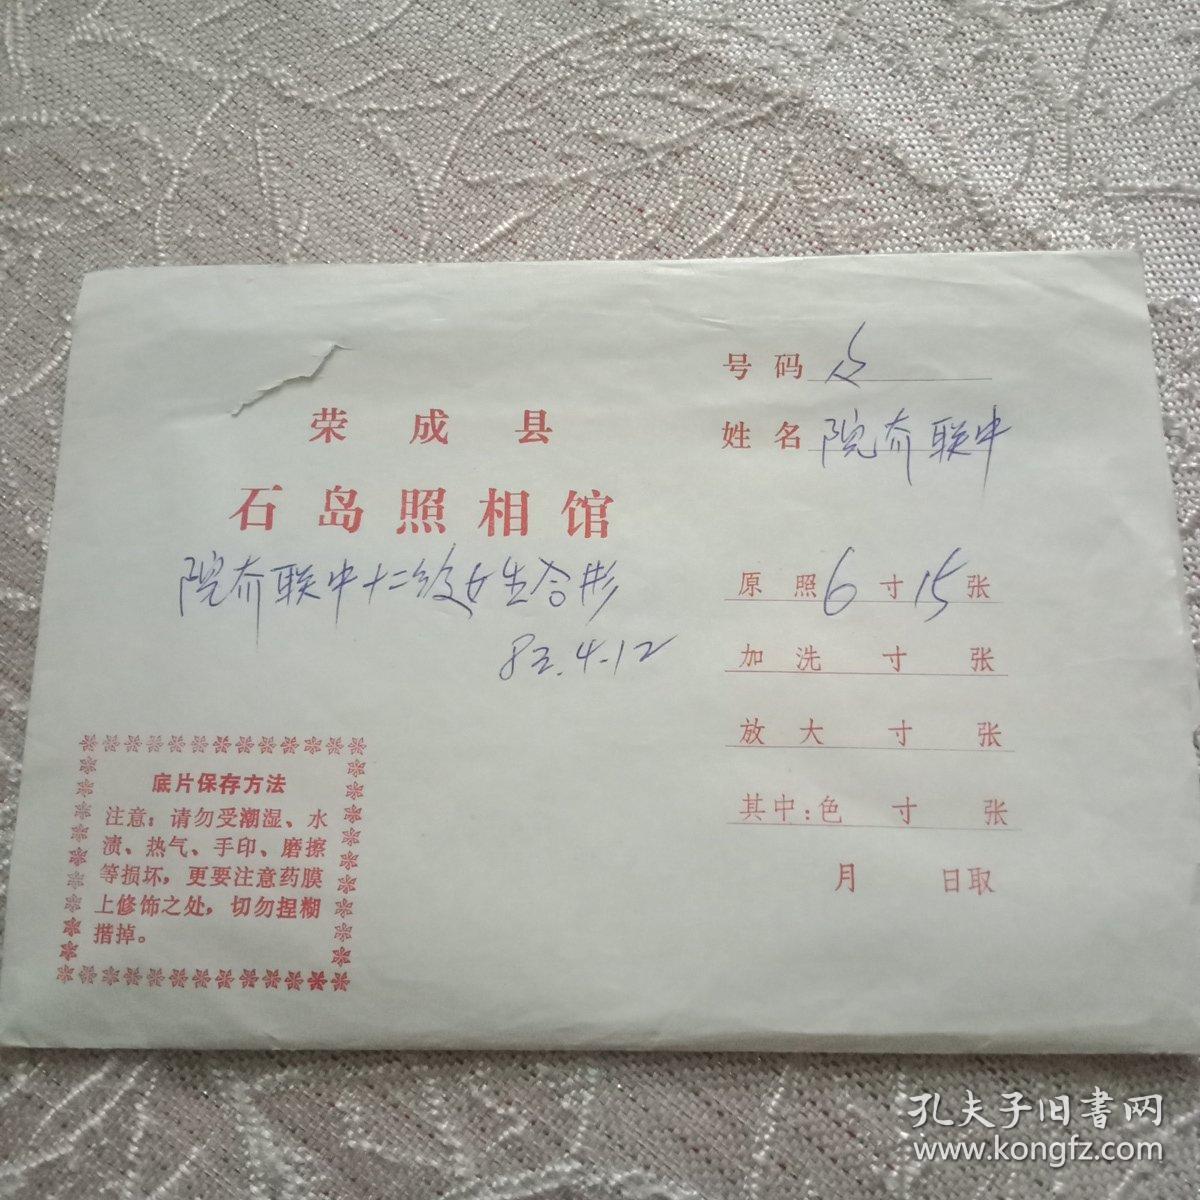 荣成县
石岛照相馆
院夼联中十二级女生合影
83.4.12
号码
姓名 院夼联中
原照6寸15张
加洗 寸 张
放大 寸 张
其中:色 寸 张
月 日取
底片保存方法
注意:请勿受潮湿、水
渍、热气、手印、磨擦
等损坏,更要注意药膜
上修饰之处,切勿捏糊
措掉。
孔夫子旧书网
www.kongfz.com